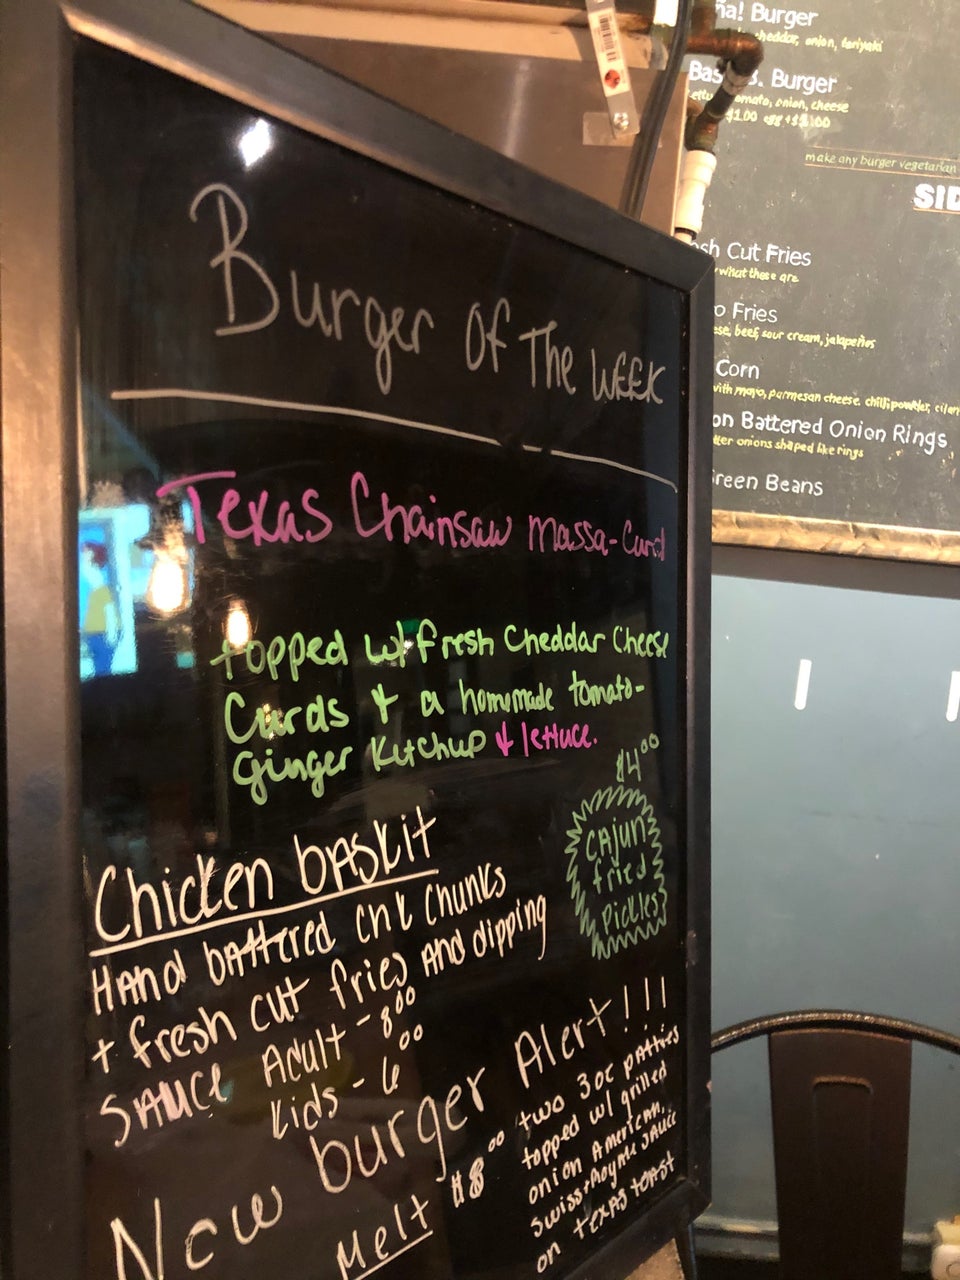 Burger Of The WEEK
Texas Chainsaw Massa-Curd
topped w/ fresh Cheddar Cheese
Curds + a homemade tomato-
Ginger Ketchup + lettuce.
$4.00
CAjun
fried
Pickles
Chicken bASKit
HAnd bAttered ChK Chunks
+ fresh cut fries AND dipping
SAUCE Adult - 8.00
Kids - 6.00
New burger Alert!!!
Melt $8.00
two 3oz pAtties
topped w/ grilled
onion American,
Swiss +
SAUCE
on TEXAS toAst
ña! Burger
cheddar, onion, teriyaki
Burger
tomato, onion, cheese
$1.00 egg +$1.00
make any burger vegetarian
SID
sh Cut Fries
what these are
o Fries
beef, sour cream, jalapeños
Corn
with mayo, parmesan cheese, chilli powder, cilan
on Battered Onion Rings
onions shaped like rings
Green Beans